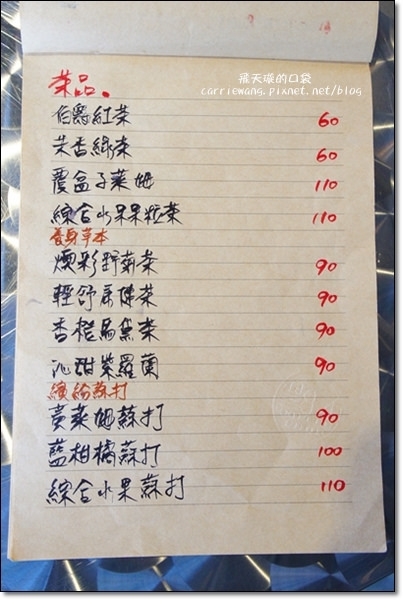 飛天璇的口袋
carriewang.pixnet.net/blog
茶品。
伯爵紅茶 60
茉香綠茶 60
覆盆子萊姆 110
綜合水果果粒茶 110
養身草本
煥彩野菊茶 90
輕舒康俤茶 90
香橙馬黛茶 90
沁甜紫羅蘭 90
繽紛蘇打
黃萊姆蘇打 90
藍柑橘蘇打 100
綜合水果蘇打 110